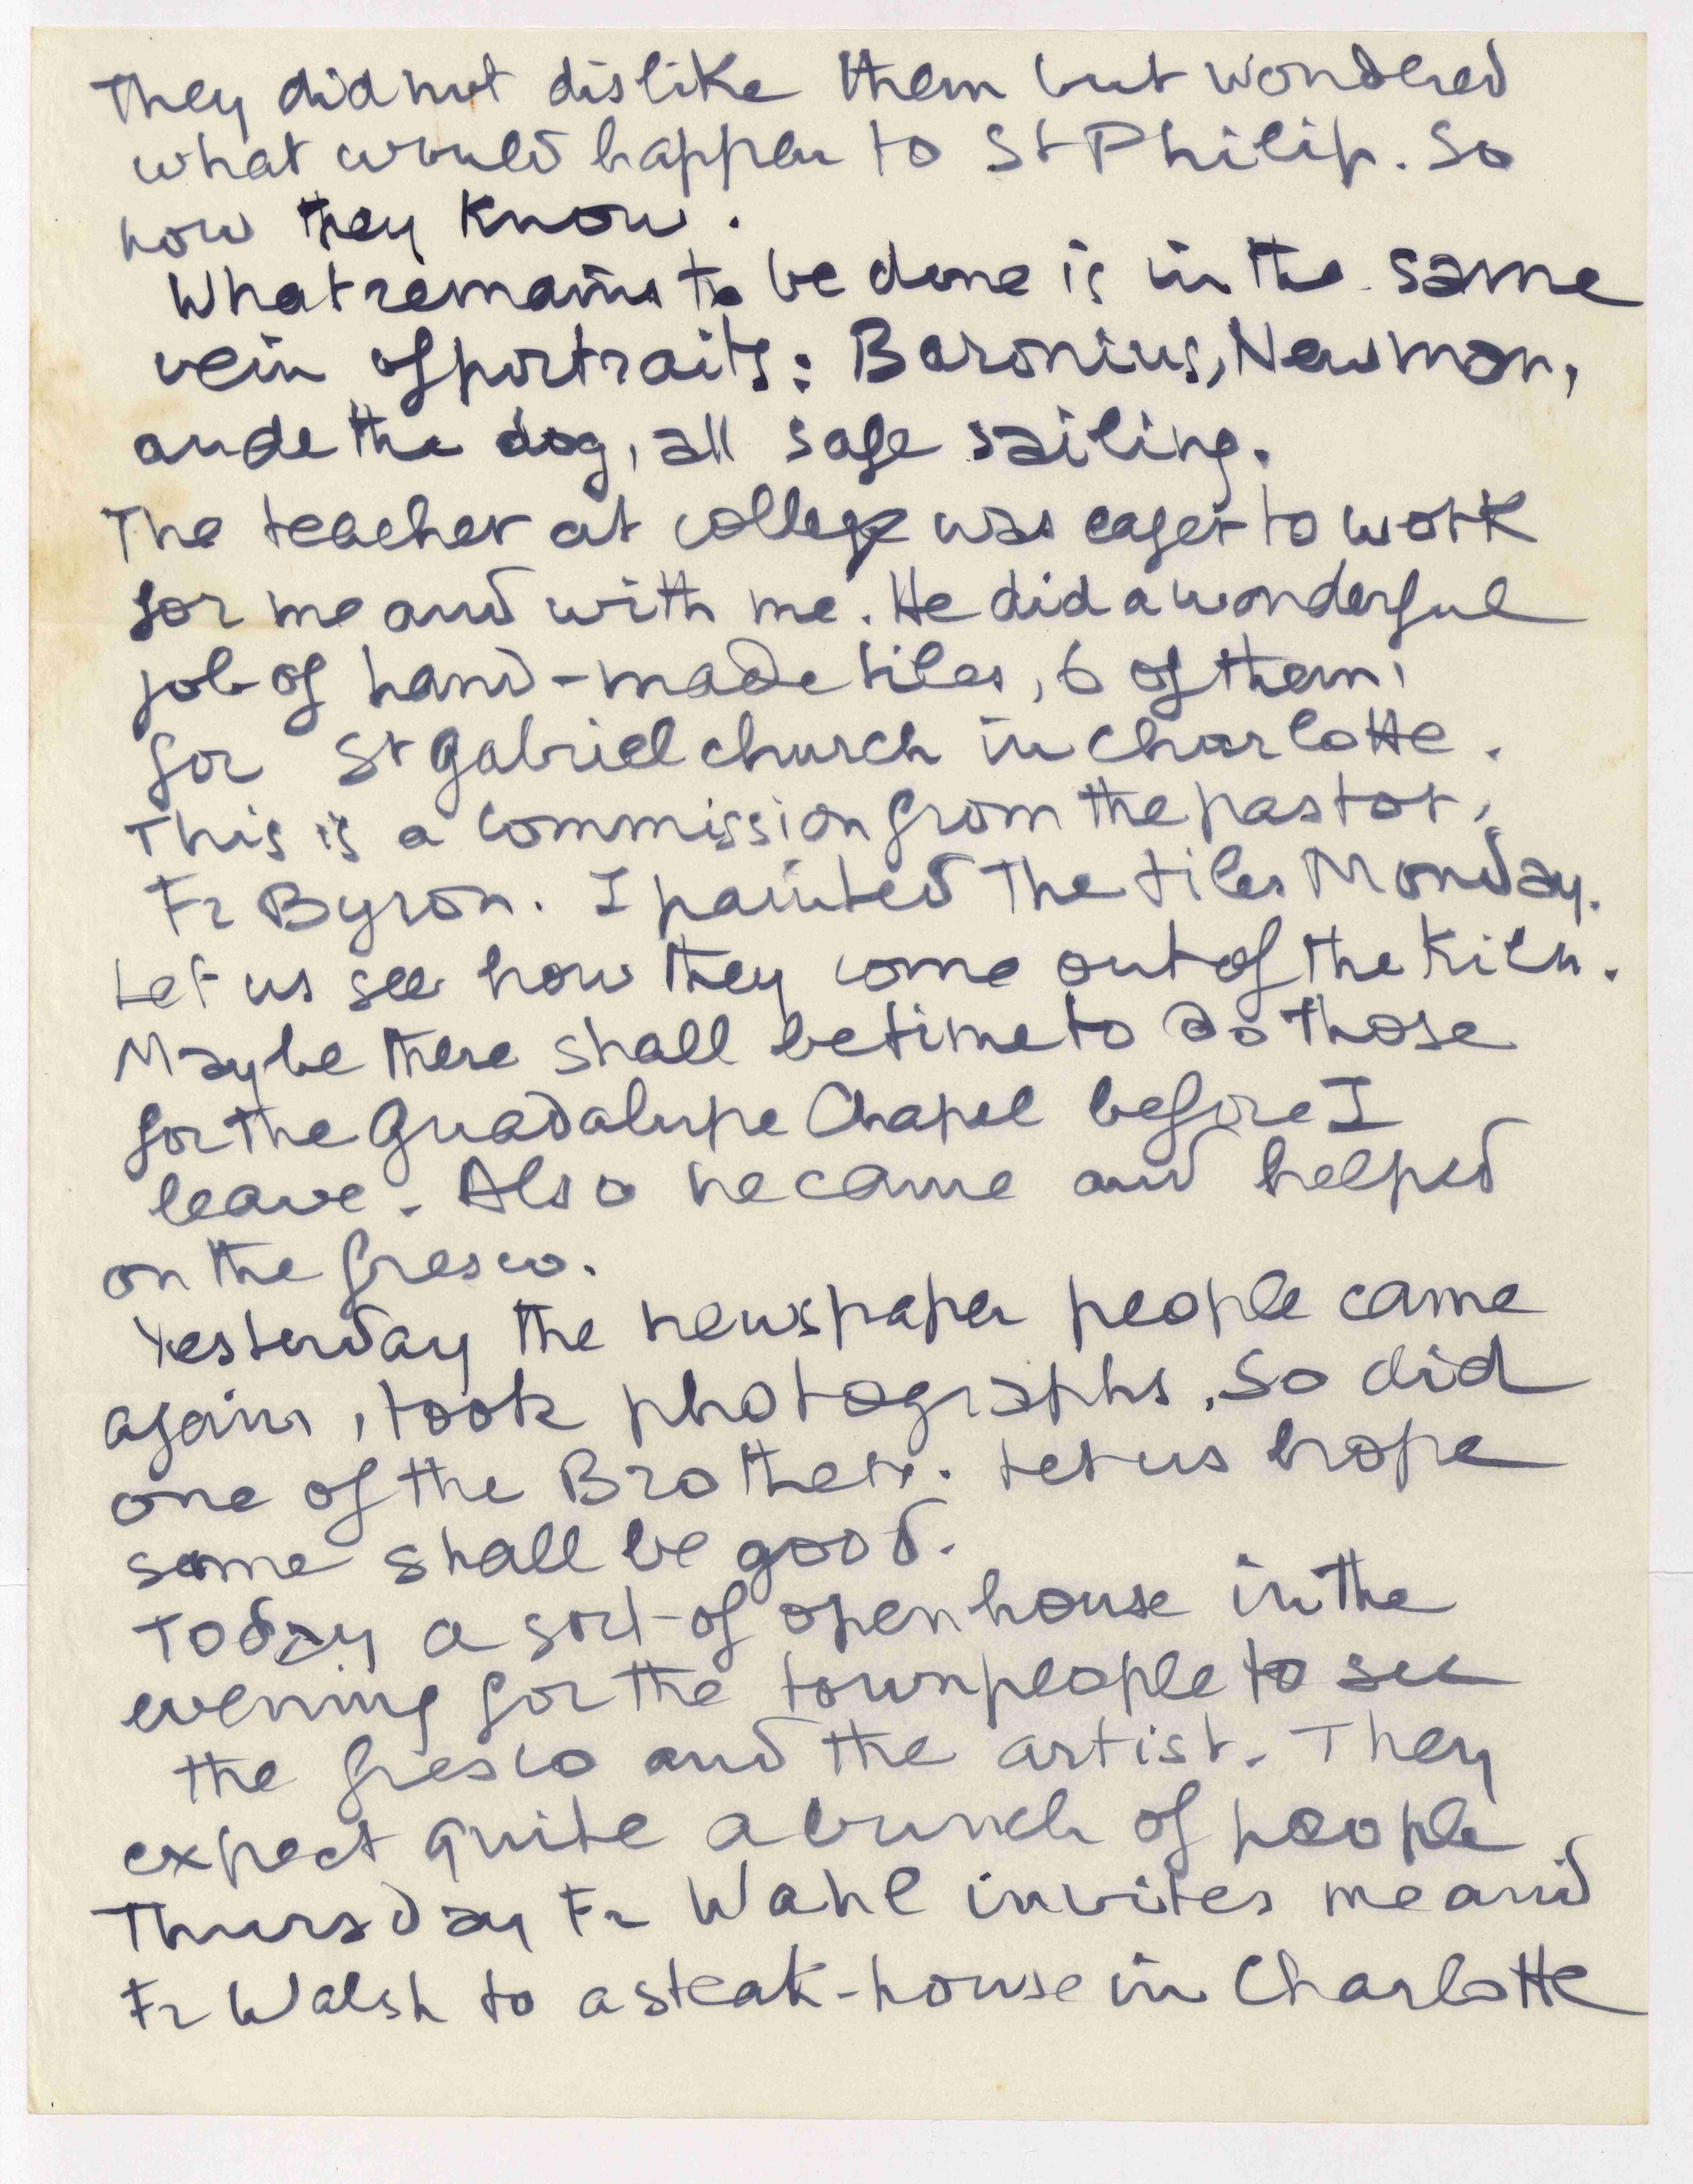 They did not dislike them but wondered
what would happen to St Philip. So
now they know.
What remains to be done is in the same
vein of portraits: Baronius, Newman,
ande the dog, all safe sailing.
The teacher at college was eager to work
for me and with me. He did a wonderful
job of hand-made tiles, 6 of them,
for St Gabriel church in Charlotte.
This is a commission from the pastor,
Fr Byron. I painted the tiles Monday.
Let us see how they come out of the kiln.
Maybe there shall be time to do those
for the Guadalupe Chapel before I
leave. Also he came and helped
on the fresco.
Yesterday the newspaper people came
again, took photographs. So did
one of the Brothers. Let us hope
some shall be good.
Today a sort-of open house in the
evening for the townpeople to see
the fresco and the artist. They
expect quite a bunch of people.
Thursday Fr Wahl invites me and
Fr Walsh to a steak-house in Charlotte